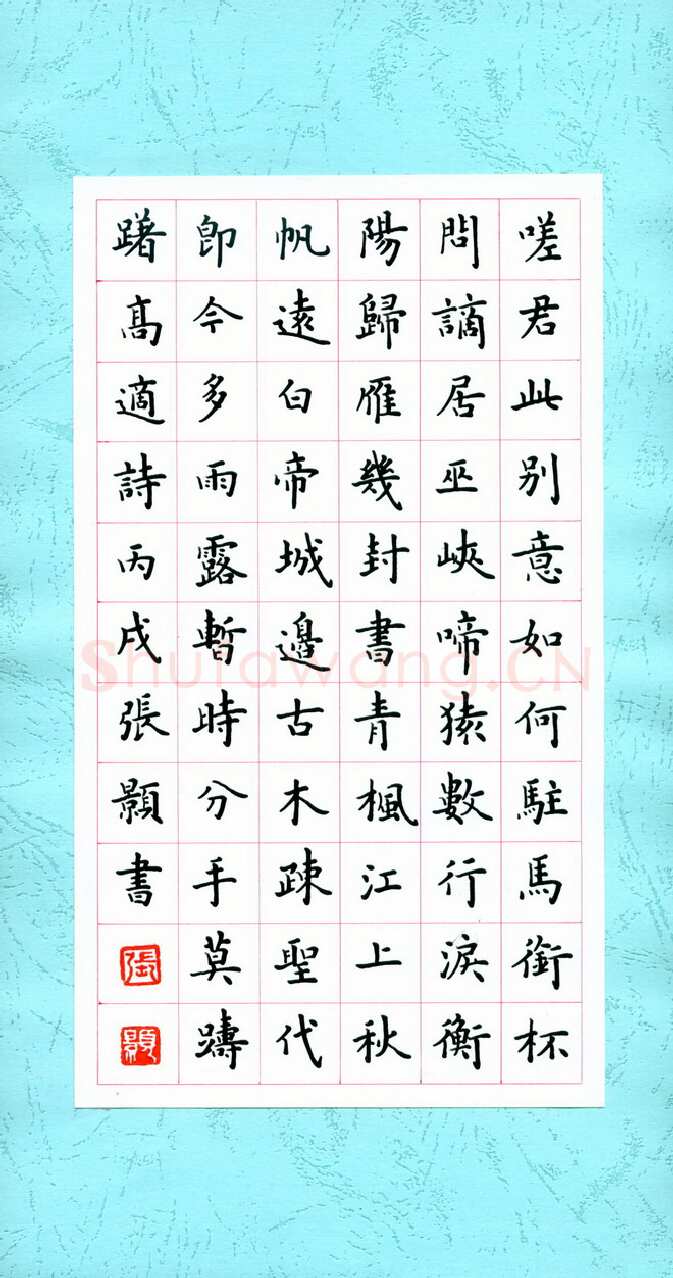 嗟君此别意如何駐馬銜杯
問謫居巫峽啼猿數行淚衡
陽歸雁幾封書青楓江上秋
帆遠白帝城邊古木疎聖代
即今多雨露暫時分手莫躊
躇高適詩丙戌張顥書
張
顥
Shufawang.CN